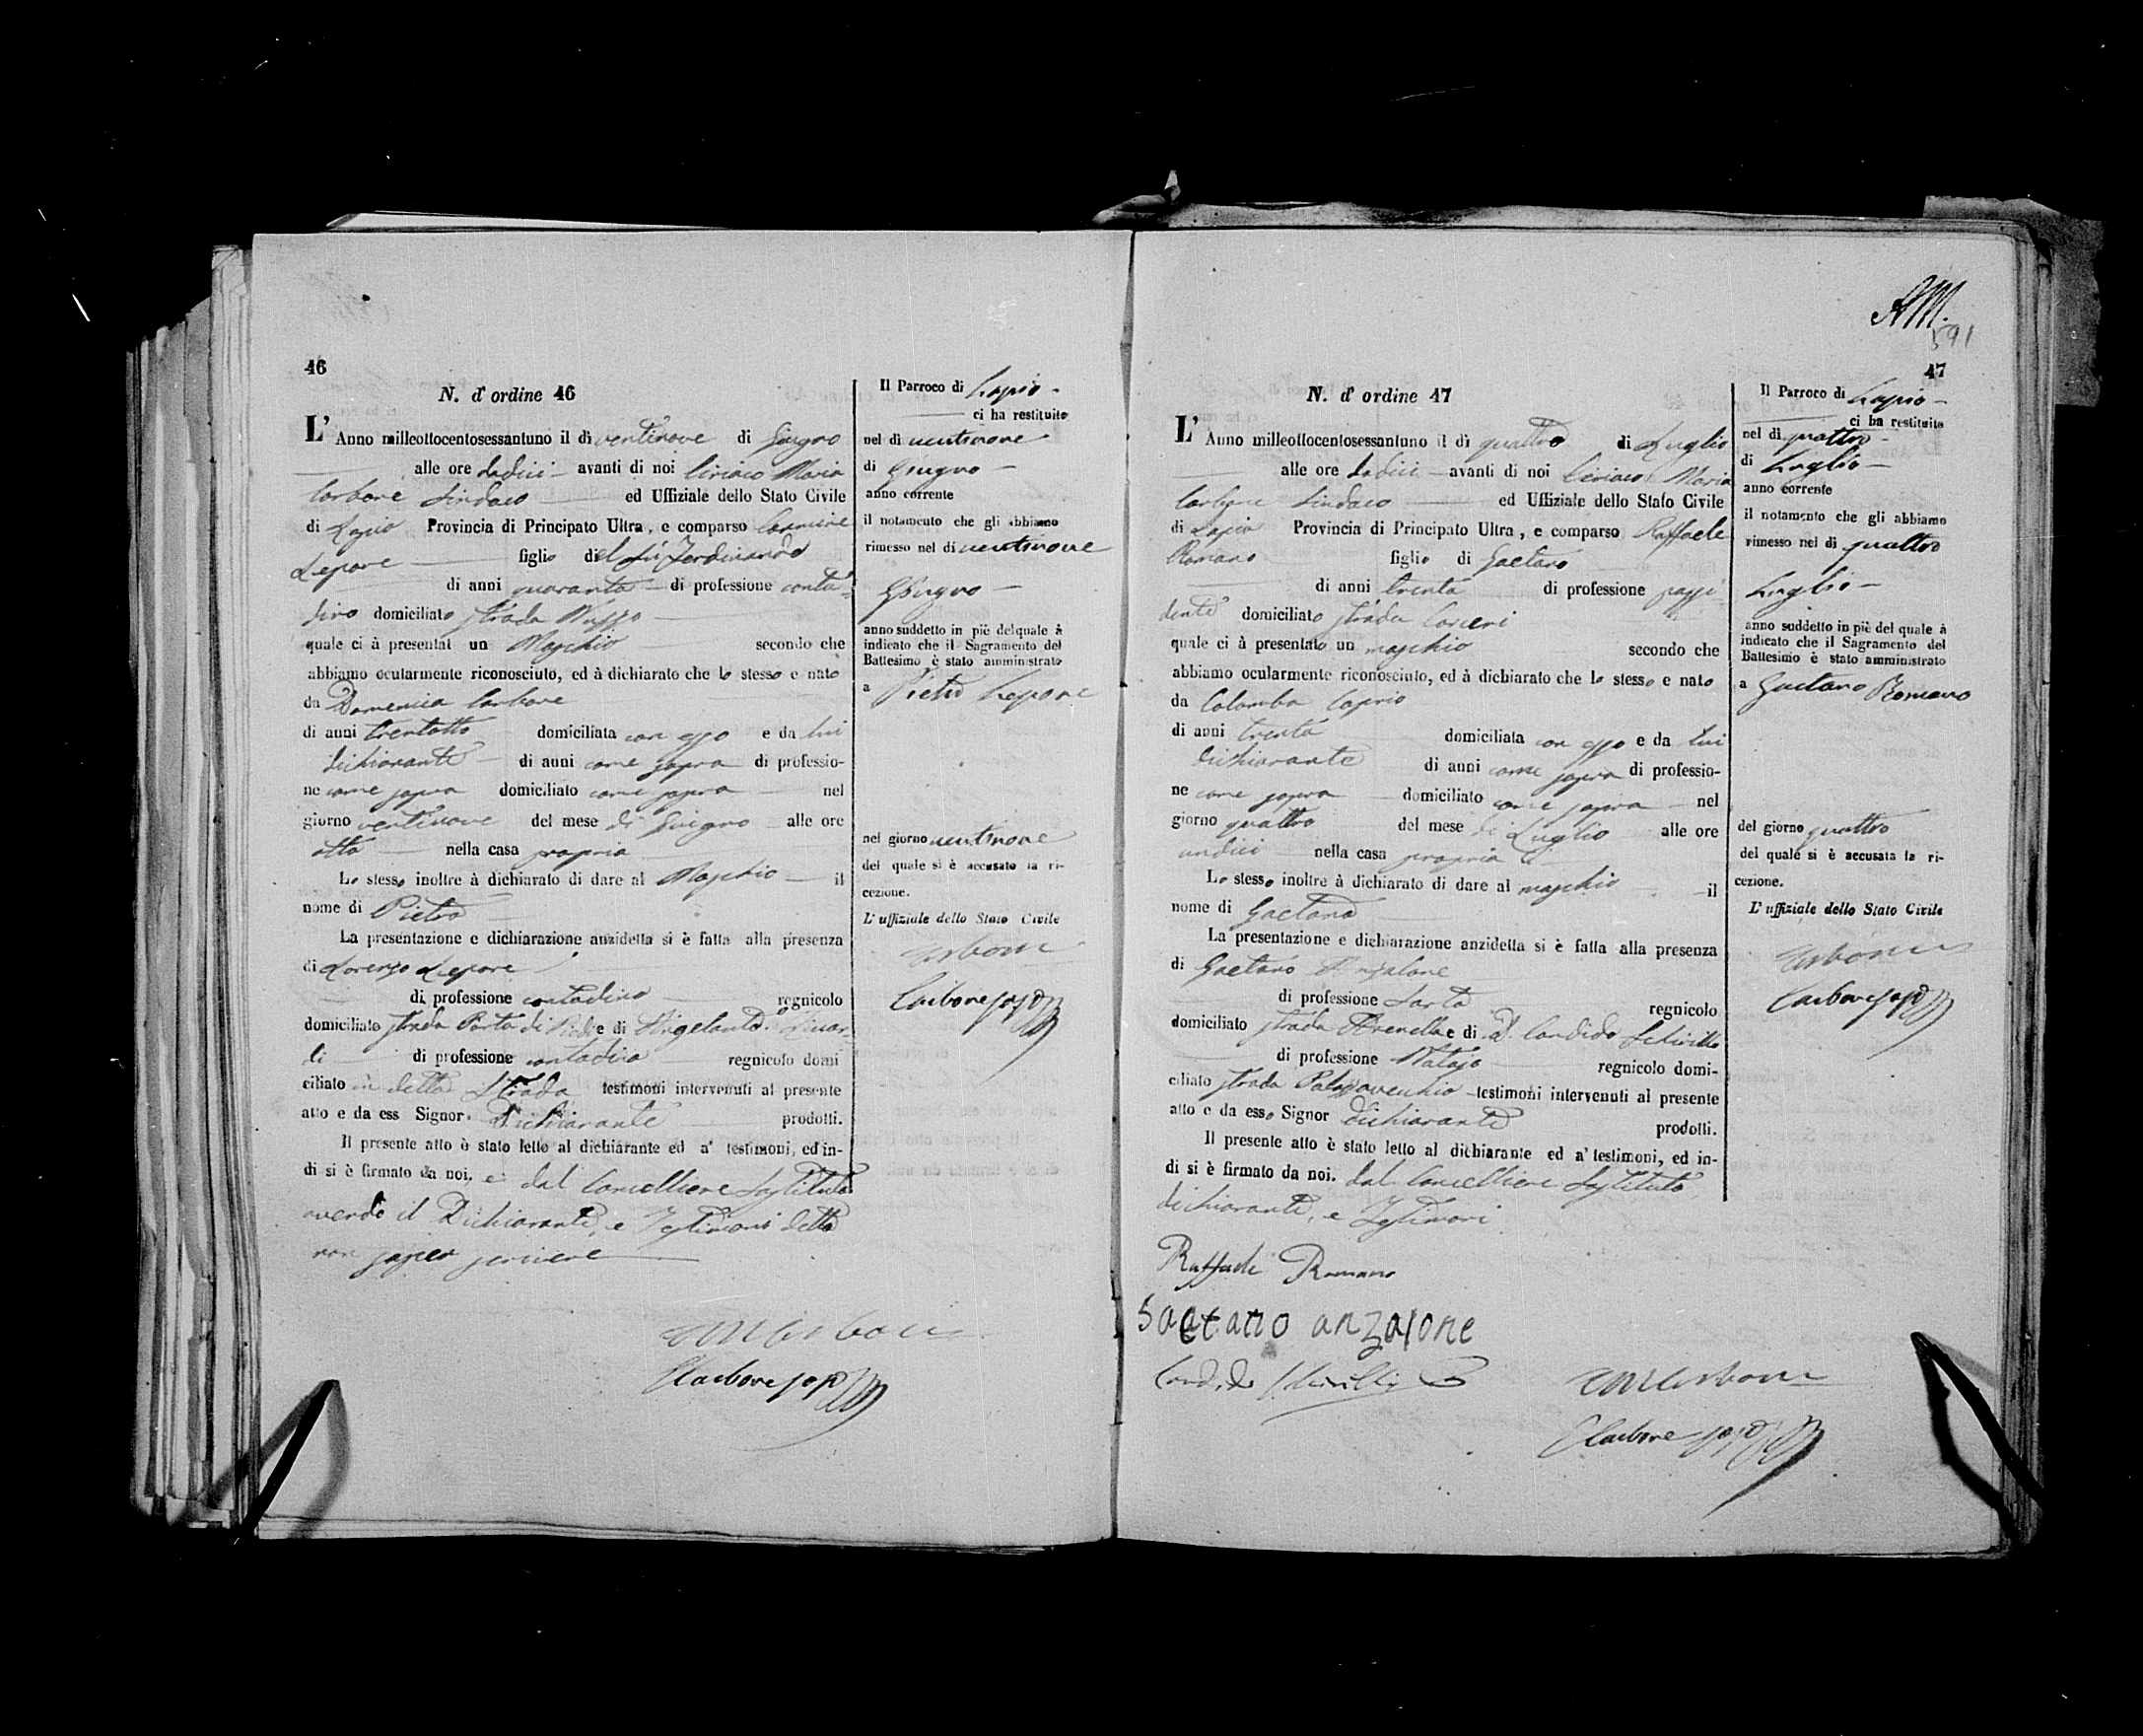 46
N. d' ordine 46
L' Anno milleottocentosessantuno il dì ventinove di Giugno
alle ore dodici avanti di noi Ciriaco Maria
Carbone Sindaco ed Uffiziale dello Stato Civile
di Lapio Provincia di Principato Ultra, e comparso Carmine
Lepore figlio del fù Ferdinando
di anni quaranta di professione conta-
dino domiciliato strada
quale ci à presentat un Maschio secondo che
abbiamo ocularmente riconosciuto, ed à dichiarato che lo stesso e nato
da Domenica Carbone
di anni trentotto domiciliata con esso e da lui
dichiarante di anni come sopra di professio-
ne come sopra domiciliato come sopra nel
giorno ventinove del mese di Giugno alle ore
otto nella casa propria
Lo stesso inoltre à dichiarato di dare al Maschio il
nome di Pietro
La presentazione e dichiarazione anzidetta si è fatta alla presenza
di Lorenzo Lepore
di professione contadino regnicolo
domiciliato strada Porta di e di Angelanto.
di professione contadino regnicolo domi
ciliato in detta Strada testimoni intervenuti al presente
atto e da ess Signor. Dichiarante prodotti.
Il presente atto è stato letto al dichiarante ed a' testimoni, ed in-
di si è firmato da noi, e dal Cancelliere Sostituto
avendo il Dichiarante, e Testimoni detto
non saper scrivere
Carbone
Il Parroco di Lapio
ci ha restituito
nel di ventinove
di Giugno
anno corrente
il notamento che gli abbiamo
rimesso nel di ventinove
Giugno
anno suddetto in piè del quale à
indicato che il Sagramento del
Battesimo è stato amministrato
a Pietro Lepore
nel giorno ventinove
del quale si è accusato la ri-
cezione.
L' uffiziale dello Stato Civile
Carbone
Carbone
AM.
591
47
N. d' ordine 47
L' Anno milleottocentosessantuno il dì quattro di Luglio
alle ore dodici avanti di noi Ciriaco Maria
Carbone Sindaco ed Uffiziale dello Stato Civile
di Lapio Provincia di Principato Ultra, e comparso Raffaele
Romano figlio di Gaetano
di anni trenta di professione possi-
dente domiciliato strada
quale ci à presentato un maschio secondo che
abbiamo ocularmente riconosciuto, ed à dichiarato che lo stesso e nato
da Colomba Caprio
di anni trenta domiciliata con esso e da lui
dichiarante di anni come sopra di professio-
ne come sopra domiciliato come sopra nel
giorno quattro del mese di Luglio alle ore
undici nella casa propria
Lo stesso inoltre à dichiarato di dare al maschio il
nome di Gaetano
La presentazione e dichiarazione anzidetta si è fatta alla presenza
di Gaetano Anzalone
di professione Sarto regnicolo
domiciliato strada Arenella e di D. Candido
di professione Notajo regnicolo domi-
ciliato strada Palazzovecchio testimoni intervenuti al presente
atto e da esso Signor dichiarante prodotti.
Il presente atto è stato letto al dichiarante ed a' testimoni, ed in-
di si è firmato da noi. dal Cancelliere Sostituto
dichiarante, e Testimoni
Raffaele Romano
Gaetano anzalone
Candido
Carbone
Il Parroco di Lapio
ci ha restituito
nel di quattro
di Luglio
anno corrente
il notamento che gli abbiamo
rimesso nel di quattro
Luglio
anno suddetto in piè del quale à
indicato che il Sagramento del
Battesimo è stato amministrato
a Gaetano Romano
del giorno quattro
del quale si è accusata la ri-
cezione.
L' uffiziale dello Stato Civile
Carbone
Carbone